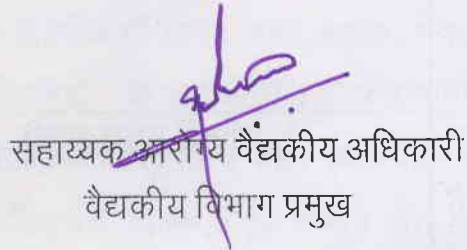 सहाय्यक आरोग्य वैद्यकीय अधिकारी
वैद्यकीय विभाग प्रमुख